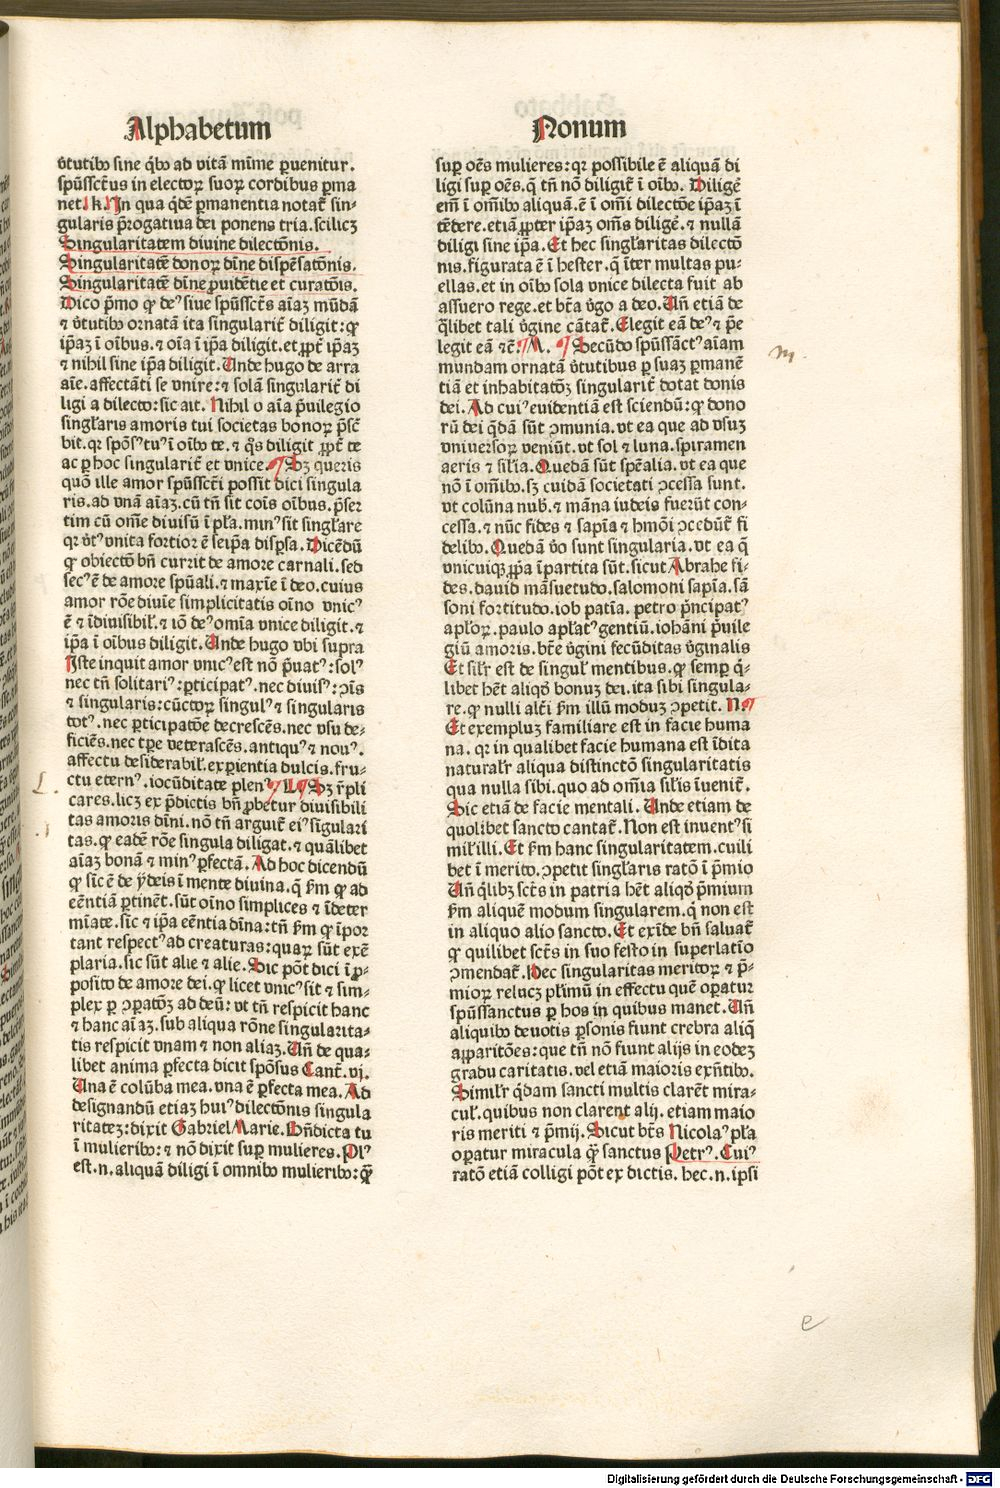 Alphabetum
Nonum
v̓tutibꝰ sine q̇bꝰ ad vitā mīme ꝑuenitur.
spūssct̄us in electoꝝ suoꝝ cordibus ꝑma
net. k. In qua qd̄e ꝑmanentia notat᷑ sin-
gularis p̄rogatiua dei ponens tria. scilicꝫ
Singularitatem diuine dilectōnis.
Singularitatē donoꝝ dīne dispēsatōnis.
Singularitatē dīne ꝓuidētie et curatōis.
Dico pⁱmo ꝙ deꝰ siue spūssct̄s aīaꝫ mūdā
⁊ v̓tutibꝰ ornatā ita singularit᷑ diligit: ꝙ
ip̄aꝫ ī oībus. ⁊ oīa ī ip̄a diligit. et ꝓpt᷑ ip̄aꝫ
⁊ nihil sine ip̄a diligit. Unde hugo de arra
aīe. affectāti se vnire: ⁊ solā singularit᷑ di
ligi a dilecto: sic ait. Nihil o aīa pⁱuilegio
singl̓aris amoris tui societas bonoꝝ p̄sc̄
bit. qꝛ spōsꝰ tuꝰ ī oībꝰ te. ⁊ q̇s diligit ꝓpt᷑ te
ac ꝑ hoc singularit᷑ et vnice. Sꝫ queris
quō ille amor spūssct̄i possit dici singula
ris. ad vnā aīaꝫ. cū tn̄ sit cōis oībus. p̄ser
tim cū om̄e diuisū ī pl̓a. minꝰ sit singl̓are
qꝛ v̓tꝰ vnita fortior ē seip̄a disꝑsa. Dicēdū
ꝙ obiectō bn̄ currit de amore carnali. sed
secꝰ ē de amore spūali. ⁊ maxīe ī deo. cuius
amor rōe diuīe simplicitatis oīno vnicꝰ
ē ⁊ īdiuisibil̓. ⁊ iō deꝰ om̄ia vnice diligit. ⁊
ip̄a ī oībus diligit. Unde hugo vbi supra
Iste inquit amor vnicꝰ est nō pⁱuatꝰ: solꝰ
nec tn̄ solitariꝰ: ꝑticipatꝰ. nec diuisꝰ: ꝯīs
⁊ singularis: cūctoꝝ singulꝰ ⁊ singularis
totꝰ. nec ꝑticipatōe decrescēs. nec vsu de-
ficiēs. nec tp̄e veterascēs. antiquꝰ ⁊ nouꝰ.
affectu desiderabil̓. exꝑientia dulcis. fru-
ctu eternꝰ. iocūditate plenꝰ. L. Sꝫ r̄pli
cares. licꝫ ex p̄dictis bn̄ ꝓbetur diuisibili
tas amoris dīni. nō tn̄ arguit᷑ eiꝰ sīgulari
tas. ꝙ eadē rōe singula diligat. ⁊ quālibet
aīaꝫ bonā ⁊ minꝰ ꝑfectā. Ad hoc dicendū
ꝙ sīc ē de ydeis ī mente diuina. q̄ ẜm ꝙ ad
eēntiā ꝑtinēt. sūt oīno simplices ⁊ īdeter
mīate. sīc ⁊ ip̄a eēntia dīna: tn̄ ẜm ꝙ īpor
tant respectꝰ ad creaturas: quaꝝ sūt exē
plaria. sic sūt alie ⁊ alie. Sic pōt dici ī ꝓ-
posito de amore dei. ꝙ licet vnicꝰ sit ⁊ sim-
plex ꝑ ꝯꝑatōꝫ ad deū: vt tn̄ respicit hanc
⁊ hanc aīaꝫ. sub aliqua rōne singularita-
tis respicit vnam ⁊ non aliaꝫ. Un̄ de qua-
libet anima ꝑfecta dicit spōsus Cant᷑. vj.
Una ē colūba mea. vna ē ꝑfecta mea. Ad
designandū etiaꝫ huiꝰ dilectōnis singula
ritateꝫ: dixit Gabriel Marie. Bn̄dicta tu
ī mulieribꝰ: ⁊ nō dixit suꝑ mulieres. Plꝰ
est. n. aliquā diligi ī omnibꝰ mulieribꝰ: ꝙ̄
suꝑ oēs mulieres: qꝛ possibile ē aliquā di
ligi suꝑ oēs. q̄ tn̄ nō diligit᷑ ī oībꝰ. Diligē
em̄ ī om̄ibꝰ aliquā. ē ī om̄i dilectōe ip̄aꝫ ī
tēdere. etiā ꝓpter ip̄aꝫ om̄s diligē. ⁊ nullā
diligi sine ip̄a. Et hec singl̓aritas dilectō
nis. figurata ē ī hester. q̄ īter multas pu-
ellas. et in oībꝰ sola vnice dilecta fuit ab
assuero rege. et bt̄a v̓go a deo. Un̄ etiā de
q̄libet tali v̓gine cātat᷑. Elegit eā deꝰ ⁊ p̄e
legit eā ⁊c̄. M. Secūdo spūssāctꝰ aīam
mundam ornatā v̓tutibus ꝑ suaꝫ ꝑmanē
tiā et inhabitatōꝫ singularit᷑ dotat donis
dei. Ad cuiꝰ euidentiā est sciendū: ꝙ dono
rū dei q̄dā sūt ꝯmunia. vt ea que ad vsuꝫ
vniuersoꝝ veniūt. vt sol ⁊ luna. spiramen
aeris ⁊ sil̓ia. Quedā sūt spēalia. vt ea que
nō ī om̄ibꝰ. sꝫ cuidā societati ꝯcessa sunt.
vt colūna nub̓. ⁊ māna iudeis fuerūt con-
cessa. ⁊ nūc fides ⁊ sapīa ⁊ hmōi ꝯcedūt᷑ fi
delibꝰ. Quedā v̓o sunt singularia. vt ea q̄
vnicuiqꝫ ꝓp̄a īpartita sūt. sicut Abrahe fi-
des. dauid māsuetudo. salomoni sapīa. sā
soni fortitudo. iob patīa. petro pⁱncipatꝰ
apl̓oꝝ. paulo apl̓atꝰ gentiū. iohāni pⁱuile
giū amoris. bt̄e v̓gini fecūditas v̓ginalis
Et sil̓r est de singul̓ mentibus. ꝙ semꝑ q̄-
libet hēt aliqō bonuꝫ dei. ita sibi singula-
re. ꝙ nulli alt̓i ẜm illū moduꝫ ꝯpetit. N.
Et exempluꝫ familiare est in facie huma
na. qꝛ in qualibet facie humana est īdita
naturalr̓ aliqua distinctō singularitatis
qua nulla sibi. quo ad om̄ia sil̓is īuenit᷑.
Sic etiā de facie mentali. Unde etiam de
quolibet sancto cantat᷑. Non est inuentꝰ si
mil̓ illi. Et ẜm hanc singularitatem. cuili
bet ī merito. ꝯpetit singl̓aris ratō ī pⁱmio
Un̄ q̄libꝫ sct̄s in patria hēt aliqō pⁱmium
ẜm aliquē modum singularem. q̄ non est
in aliquo alio sancto. Et exīde bn̄ saluat᷑
ꝙ quilibet sct̄s in suo festo in superlatīo
ꝯmendat᷑. Hec singularitas meritoꝝ ⁊ p̄-
mioꝝ relucꝫ pl̓imū in effectu quē oꝑatur
spūssanctus ꝑ hos in quibus manet. Un̄
aliquibꝰ deuotis ꝑsonis fiunt crebra aliq̄
apparitōes: que tn̄ nō fiunt alijs in eodeꝫ
gradu caritatis. vel etiā maioris exn̄tibꝰ.
Simil̓r q̇dam sancti multis clarēt mira-
cul̓. quibus non clarent alij. etiam maio
ris meriti ⁊ pⁱmij. Sicut bt̄s Nicolaꝰ pl̓a
oꝑatur miracula ꝙ̄ sanctus Petrꝰ. Cuiꝰ
ratō etiā colligi pōt ex dictis. hec. n. ipsi
L.
m.
e
Digitalisierung gefördert durch die Deutsche Forschungsgemeinschaft - DFG